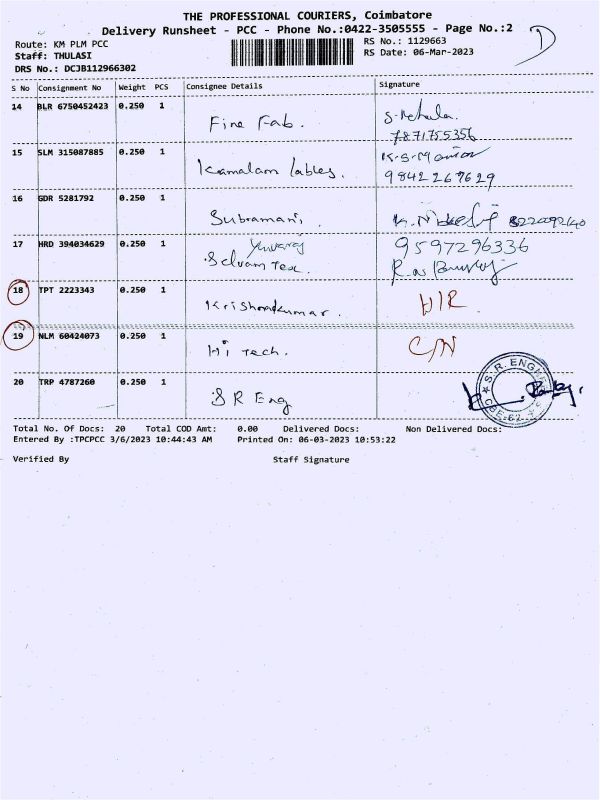 THE PROFESSIONAL COURIERS, Coimbatore
Delivery Runsheet - PCC - Phone No.:0422-3505555 - Page No.:2
Route: KM PLM PCC
Staff: THULASI
DRS No.: DCJB112966302
RS No.: 1129663
RS Date: 06-Mar-2023
D
S No Consignment No Weight PCS Consignee Details Signature
14 BLR 6750452423 0.250 1 Fine Fab.
7871755356
15 SLM 315087885 0.250 1 Kamalam lables.
9842267629
16 GDR 5281792 0.250 1 Subramani,
17 HRD 394034629 0.250 1 Selvam Tex. 9597296336
Yuvaraj
18 TPT 2223343 0.250 1 Krishnakumar. H/R
19 NLM 60424073 0.250 1 Hi Tech. C/N
20 TRP 4787260 0.250 1 S R Eng
S. R. ENGG
CBE-62
Total No. Of Docs: 20 Total COD Amt: 0.00 Delivered Docs: Non Delivered Docs:
Entered By :TPCPCC 3/6/2023 10:44:43 AM Printed On: 06-03-2023 10:53:22
Verified By Staff Signature